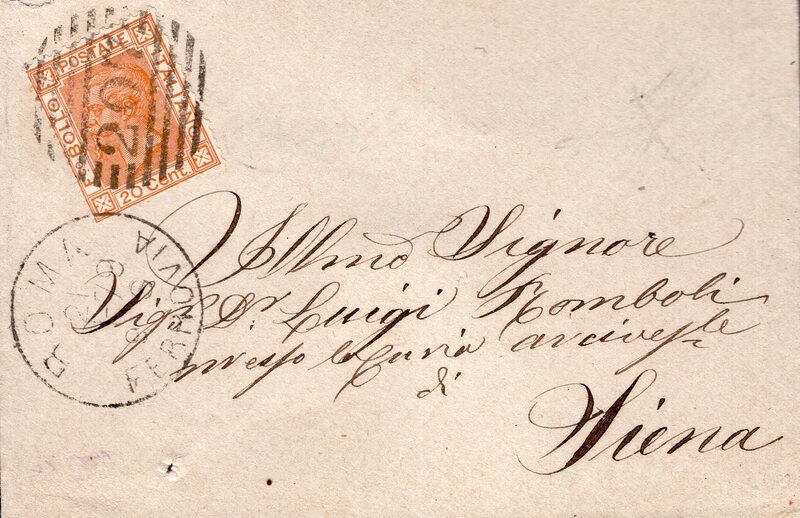 POSTALE
ITALIANO
BOLLO
20 Cent.
207
ROMA
FERROVIA
Illmo Signore
Sig. Dr Luigi Romboli
presso la Curia arcivesle
di
Siena